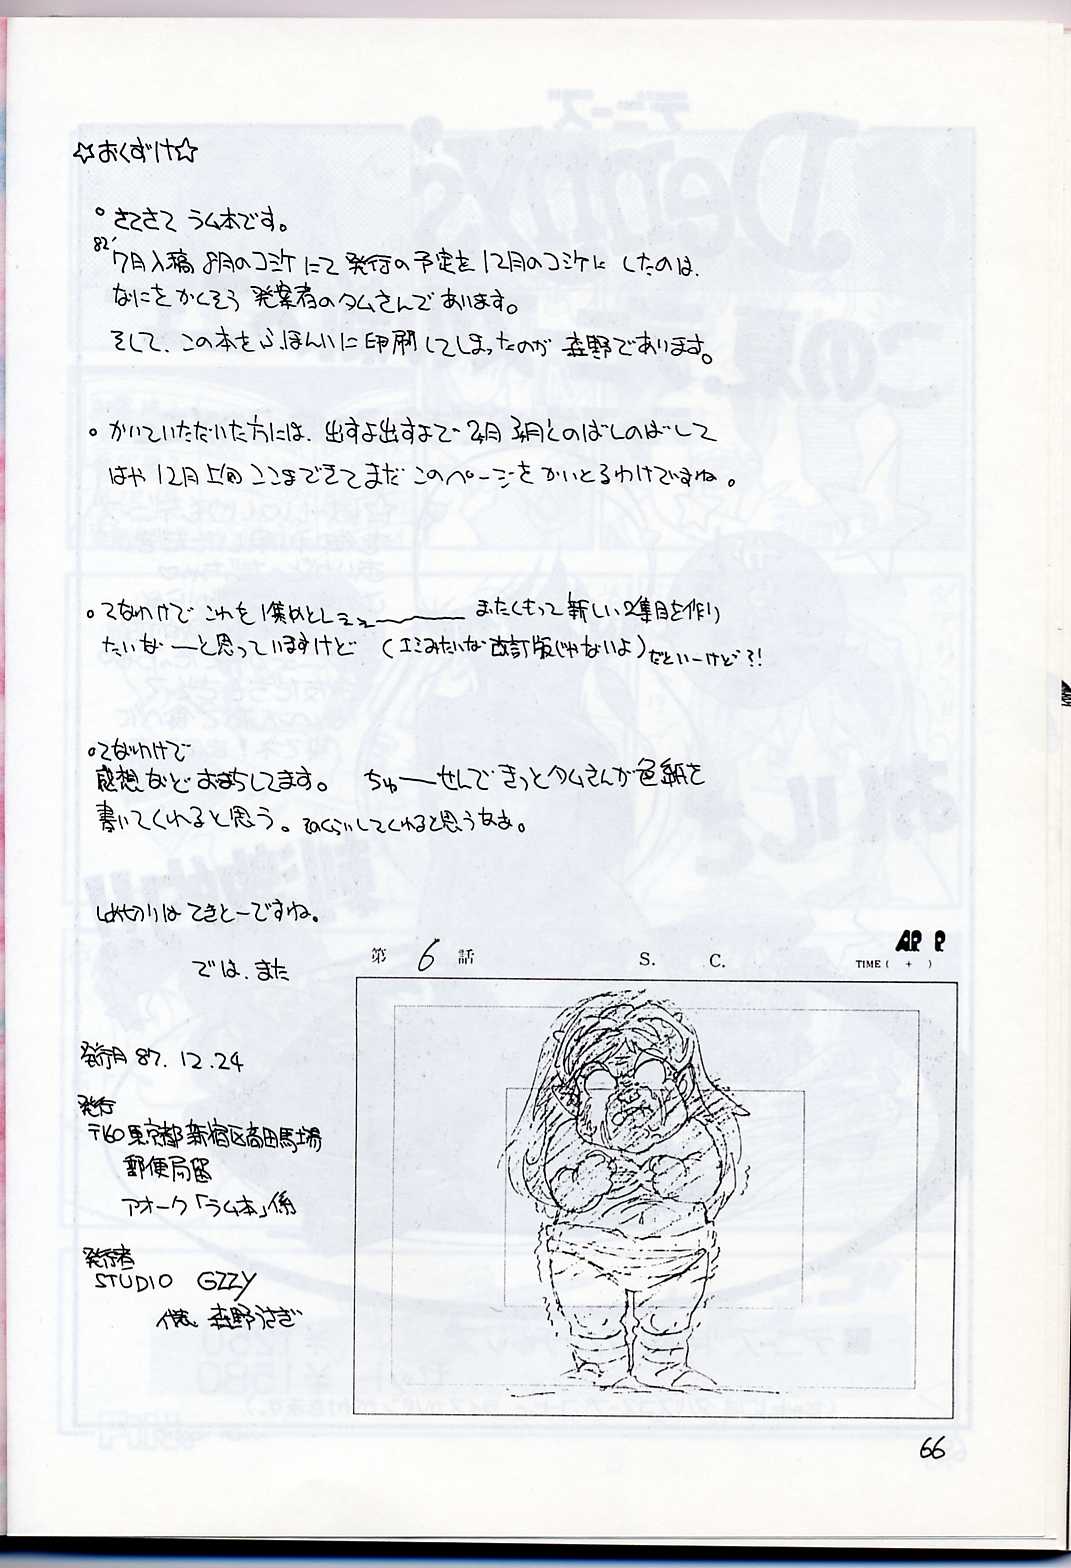 ☆おくずけ☆
。さてさて ラム本です。
82'
7月入稿 8月のコミケにて 発行の予定を 12月のコミケに したのは、
なにを かくそう 発案者のタムさんで あります。
そして、この本を ふほんいに 印刷してしまったのが 森野であります。
。かいていただいた方には、出すよ出すよで 2月 3月とのばしのばして
はや 12月上旬 ここまできて まだ このページを かいとるわけですね。
。てなわけで これを 1集めとしぇぇ～ まったくもって 新しい2集目を作り
たいなーと思っていますけど (エミみたいな 改訂版じゃないよ) だといーけど?!
。てなわけで
感想など おまちしてます。 ちゅーせんで きっと タムさんが 色紙を
書いてくれると思う。そのくらいしてくれると思うなぁ。
しめ切りは てきとーですね。
では、また
第 6 話 S. C.
TIME( + )
発行月 87.12.24
発行
〒160 東京都新宿区高田馬場
郵便局留
アオーク「ラム本」係
発行者
STUDIO GZZY
代表 森野うさぎ
66